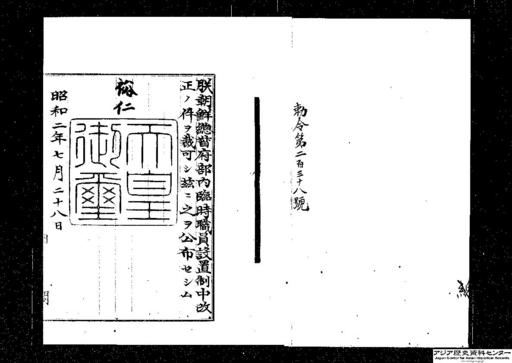 勅令第二百三十八號
朕朝鮮總督府部內臨時職員設置制中改
正ノ件ヲ裁可シ玆ニ之ヲ公布セシム
裕仁
天皇御璽
昭和二年七月二十八日
アジア歴史資料センター
Japan Center for Asian Historical Records